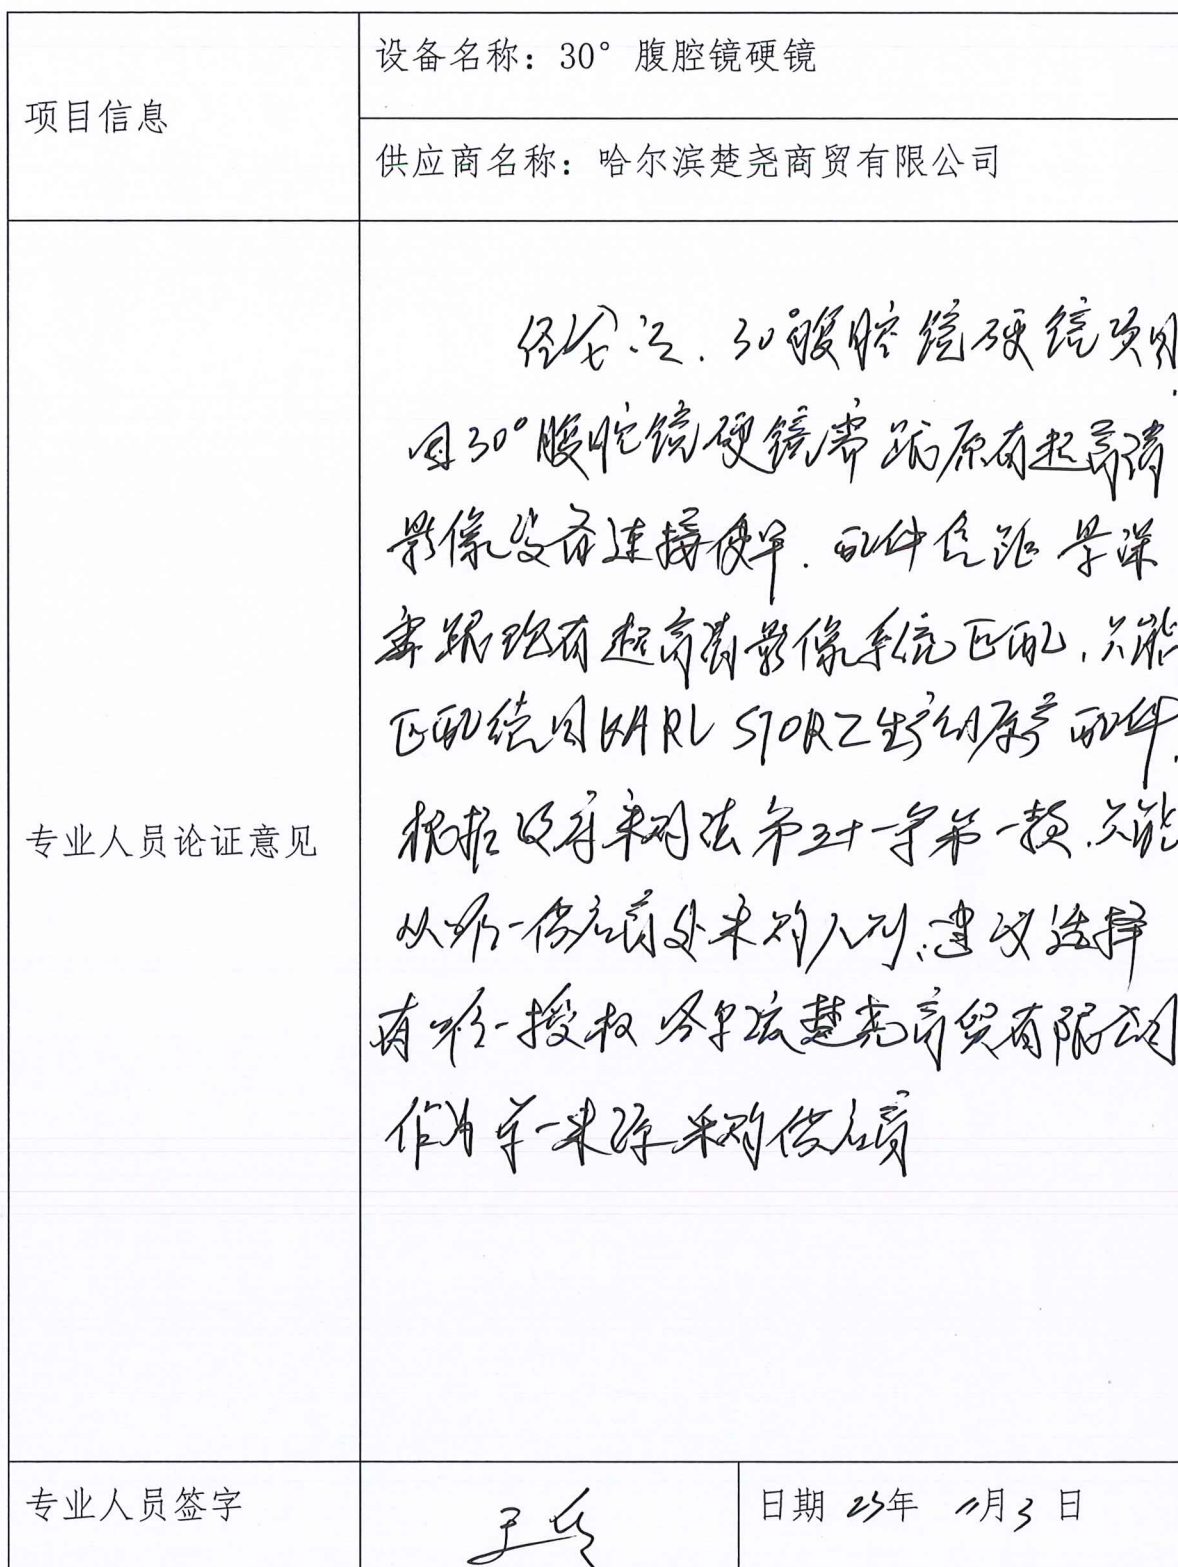 设备名称：30° 腹腔镜硬镜
项目信息
供应商名称：哈尔滨楚尧商贸有限公司
经论证．30°腹腔镜硬镜项目
因30°腹腔镜硬镜需跟原有超高清
影像设备连接使用．配件焦距 景深
需跟现有超高清影像系统匹配，只能
匹配使用KARL STORZ生产的原厂配件，
专业人员论证意见
根据政府采购法第三十一条第一款，只能
从唯一供应商处采购原则，建议选择
有唯一授权 哈尔滨楚尧商贸有限公司
作为单一来源采购供应商
专业人员签字
日期 23年 11月3日